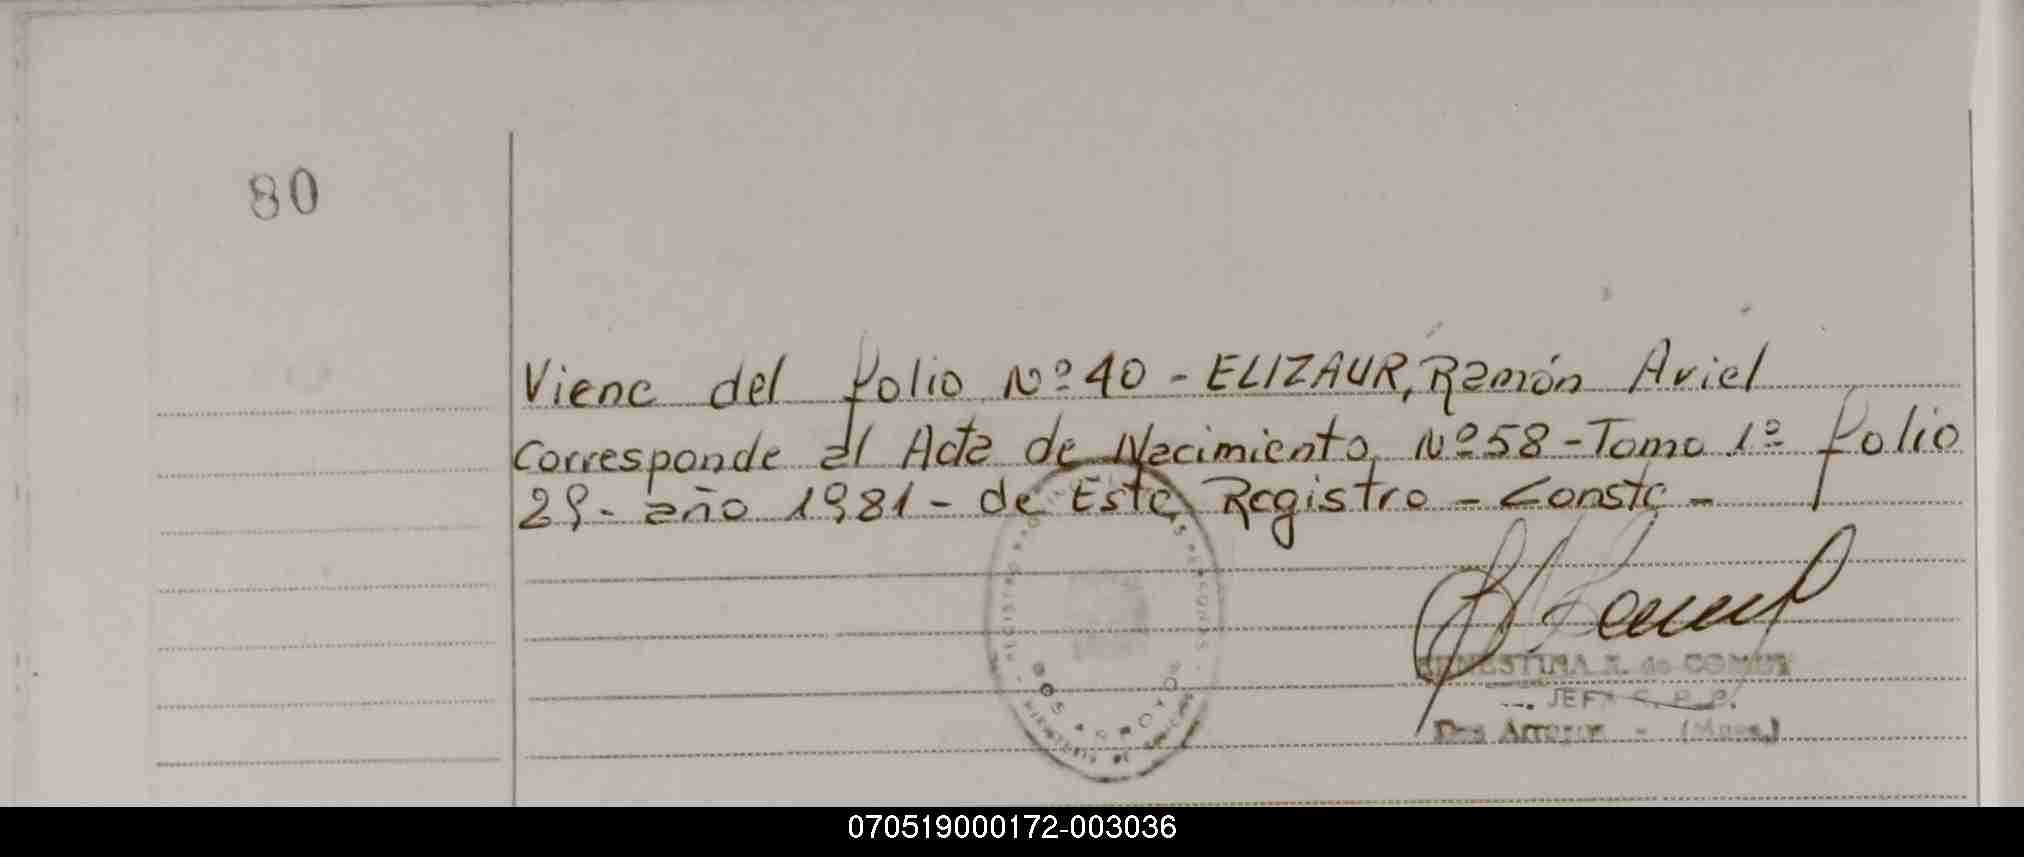 80
Viene del folio Nº 40 - ELIZAUR, Ramón Ariel
Corresponde al Acta de Nacimiento Nº 58 - Tomo 1º folio
29 - año 1981 - de Este Registro - Conste -
DOS ARROYOS
ERNESTINA de
JEFA
Dos Arroyos - (Mnes.)
070519000172-003036